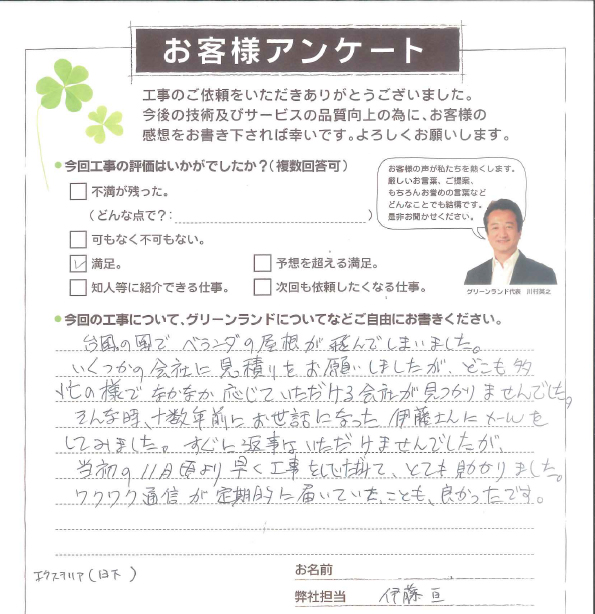 お客様アンケート
工事のご依頼をいただきありがとうございました。
今後の技術及びサービスの品質向上の為に、お客様の
感想をお書き下されば幸いです。よろしくお願いします。
●今回工事の評価はいかがでしたか?(複数回答可)
不満が残った。
(どんな点で?: )
可もなく不可もない。
満足。
予想を超える満足。
知人等に紹介できる仕事。
次回も依頼したくなる仕事。
お客様の声が私たちを動くします。
厳しいお言葉、ご提案、
もちろんお誉めの言葉など
どんなことでも結構です。
是非お聞かせください。
グリーンランド代表 川村英之
●今回の工事について、グリーンランドについてなどご自由にお書きください。
台風の風で ベランダの屋根が飛んでしまいました。
いくつかの会社に見積りをお願いしましたが、どこも多
忙の様で なかなか応じていただける会社が見つかりませんでした。
そんな時、十数年前にお世話になった 伊藤さんにメールを
してみました。すぐに返事はいただけませんでしたが、
当初の11月頃より早く工事をして頂けて、とても助かりました。
ワクワク通信が定期的に届いていたことも、良かったです。
エクステリア(日下)
お名前
弊社担当 伊藤 亘